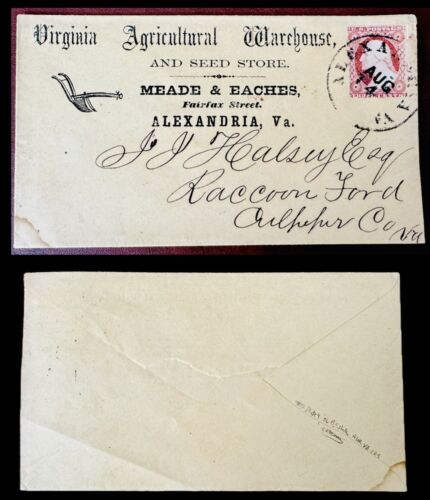 Virginia Agricultural Warehouse,
AND SEED STORE.
MEADE & EACHES,
Fairfax Street.
ALEXANDRIA, Va.
U.S. POSTAGE
ALEXA
AUG
14
VA
J J Halsey Esq
Raccoon Ford
Culpeper Co
Va